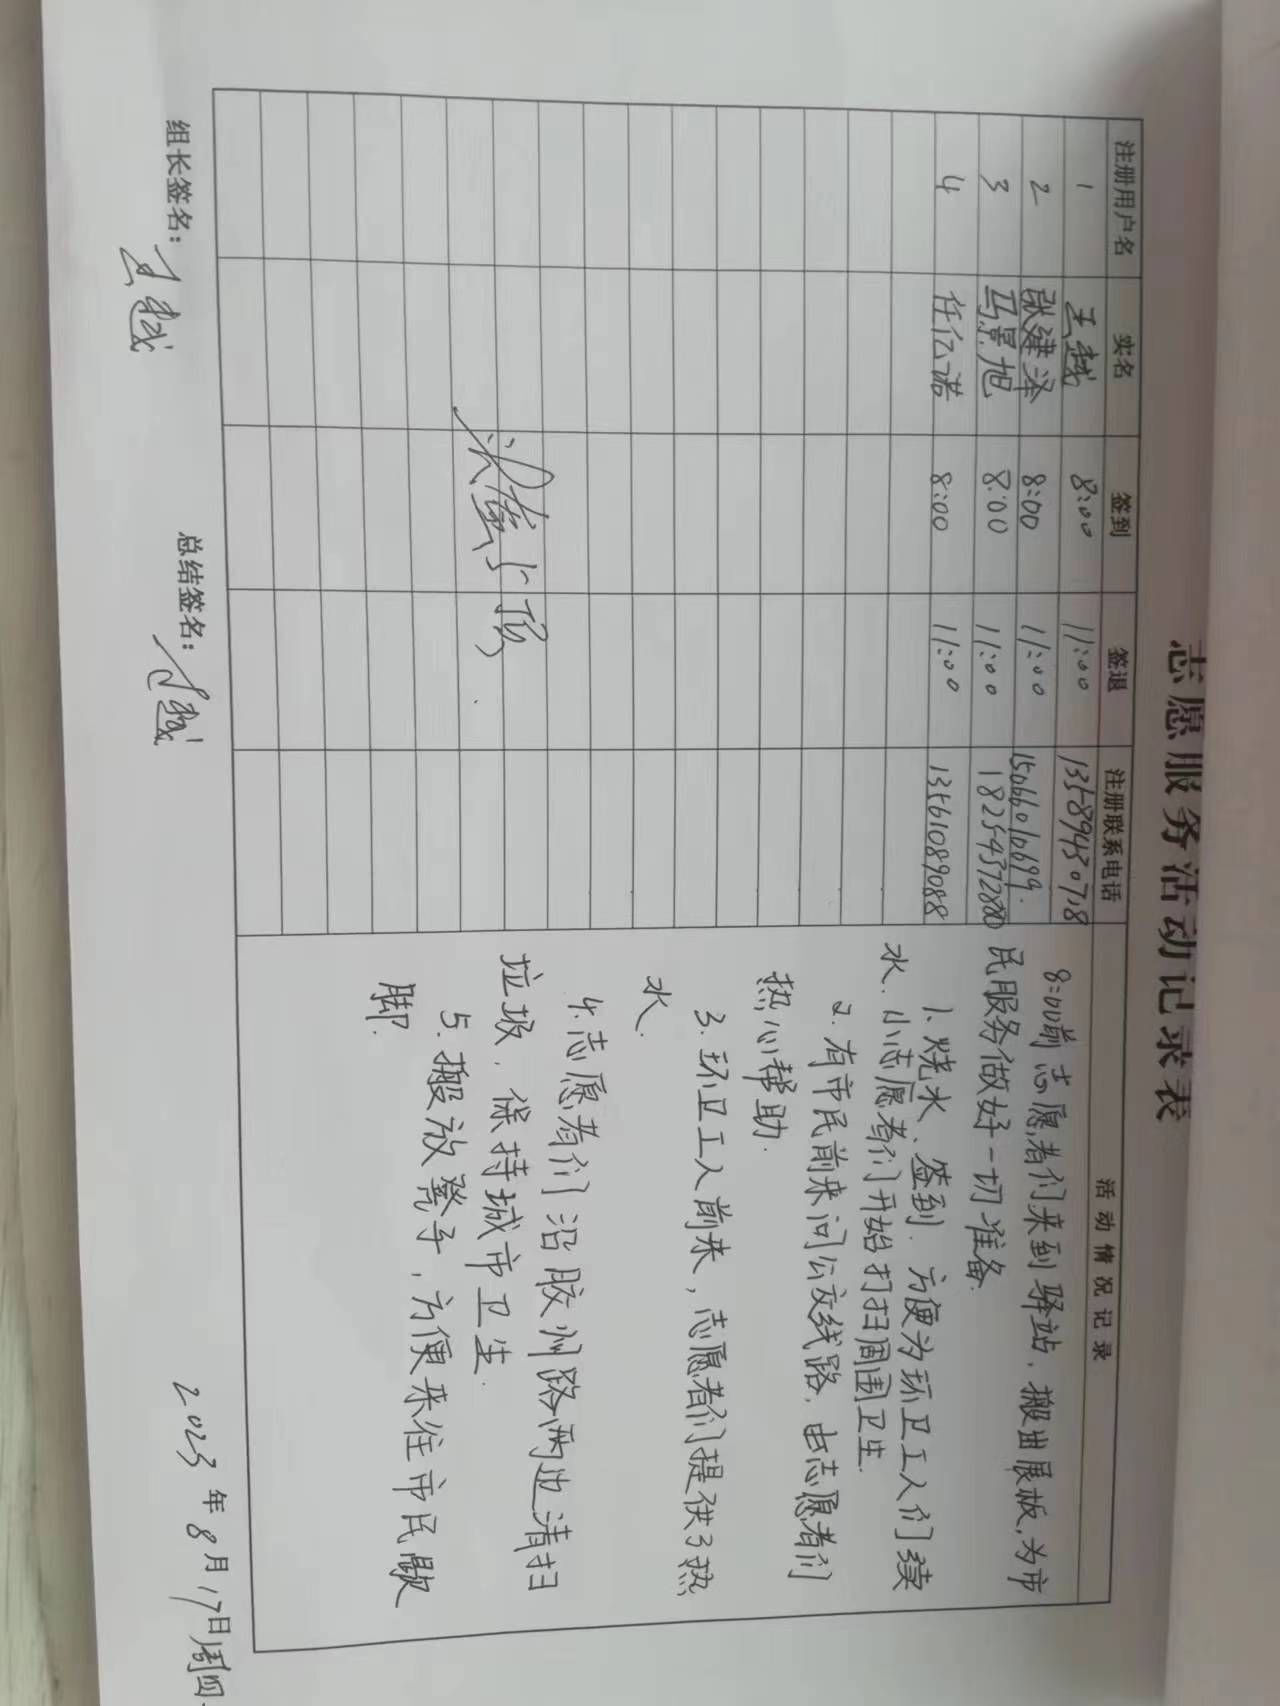 志愿服务活动记录表
注册用户名 实名 签到 签退 注册联系电话 活动情况记录
1 王越 8:00 11:00 13589430718
2 耿建泽 8:00 11:00 15066010699.
3 马景旭 8:00 11:00
4 任亿诺 8:00 11:00 13561089088
8:00前志愿者们来到驿站、搬出展板,为市
民服务做好一切准备.
1、烧水、签到.方便为环卫工人们续
水.小志愿者们开始打扫周围卫生.
2.有市民前来问公交线路.由志愿者们
热心帮助.
3.环卫工人前来,志愿者们提供了热
水.
4.志愿者们沿胶州路两边清扫
垃圾.保持城市卫生.
5.搬放凳子,方便来往市民歇
脚.
组长签名:王越 总结签名:王越 2023年8月17日周四.